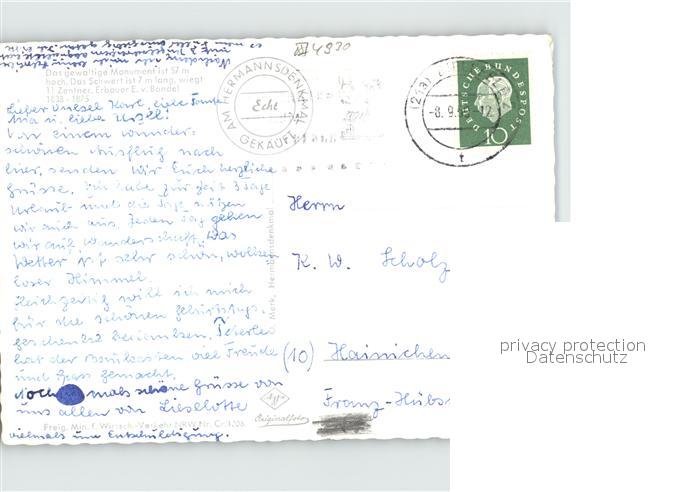 Das gewaltige Monument ist 57 m
hoch. Das Schwert ist 7 m lang, wiegt
11 Zentner. Erbauer E. v. Bandel
1838 - 1875
Lieber Onkel Karl, liebe Tante
u. liebe Ursel!
Von einem wunder-
schönen Ausflug nach
hier, senden wir Euch herzliche
Grüsse. Ich habe zur Zeit 3 Tage
Urlaub und die Tage nützen
wir auch aus. Jeden Tag gehen
wir auf Wanderschaft. Das
Wetter ist sehr schön, wolken
loser Himmel.
Gleichzeitig will ich mich
für die schönen Geburtstags-
geschenke bedanken. Peterle
hat der Baukasten viel Freude
und Spass gemacht.
Nochmals schöne Grüsse von
uns allen von Lieselotte
vielmals um Entschuldigung.
Freig. Min. f. Wirtsch.-Verkehr NRW Nr. Cr. 1305
4930
AM HERMANNSDENKMAL
Echt
GEKAUFT
-8.9.
-12
t
DEUTSCHE BUNDESPOST
10
Herrn
K. W. Scholz
(10) Hainichen
Franz-Hübs
Agfa
Originalfoto
privacy protection
Datenschutz